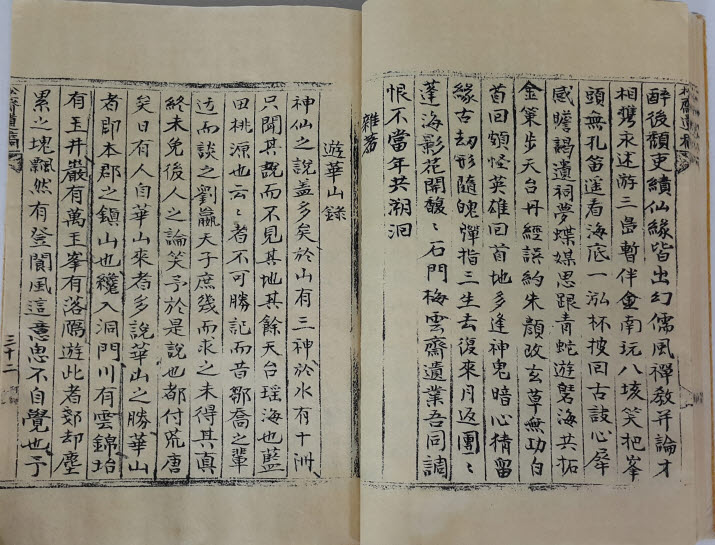 醉後頹吏續仙緣皆出幻儒風禪教并論才
相携永述游三島暫伴金南玩八垓笑把峯
頭無孔笛遙看海底一泓杯披回古話心犀
感瞻謁遺祠夢蝶媒思跟青蛇遊磬海共拓
金策步天台丹經誤約朱顔改玄草無功白
首回頓怪英雄回首地多逢神鬼暗心精留
緣古刧形隨魄彈指三生去復來月返團〻
蓬海影花開馥〻石門梅雲齋遺業吾同調
恨不當年共溯洄
雜著
遊華山錄
神仙之說蓋多矣於山有三神於水有十洲
只聞其說而不見其地其餘天台瑤海也藍
田桃源也云〻者不可勝記而昔鄒喬之輩
迃而談之劉嬴天子庶幾而求之未得其真
終未免後人之論笑予於是說也都付荒唐
矣日有人自華山來者多說華山之勝華山
者即本郡之鎭山也纔入洞門川有雲錦坮
有玉井巖有萬玉峯有落隅遊此者郊却塵
累之塊飄然有登閬風這意思不自覺也予
三十二